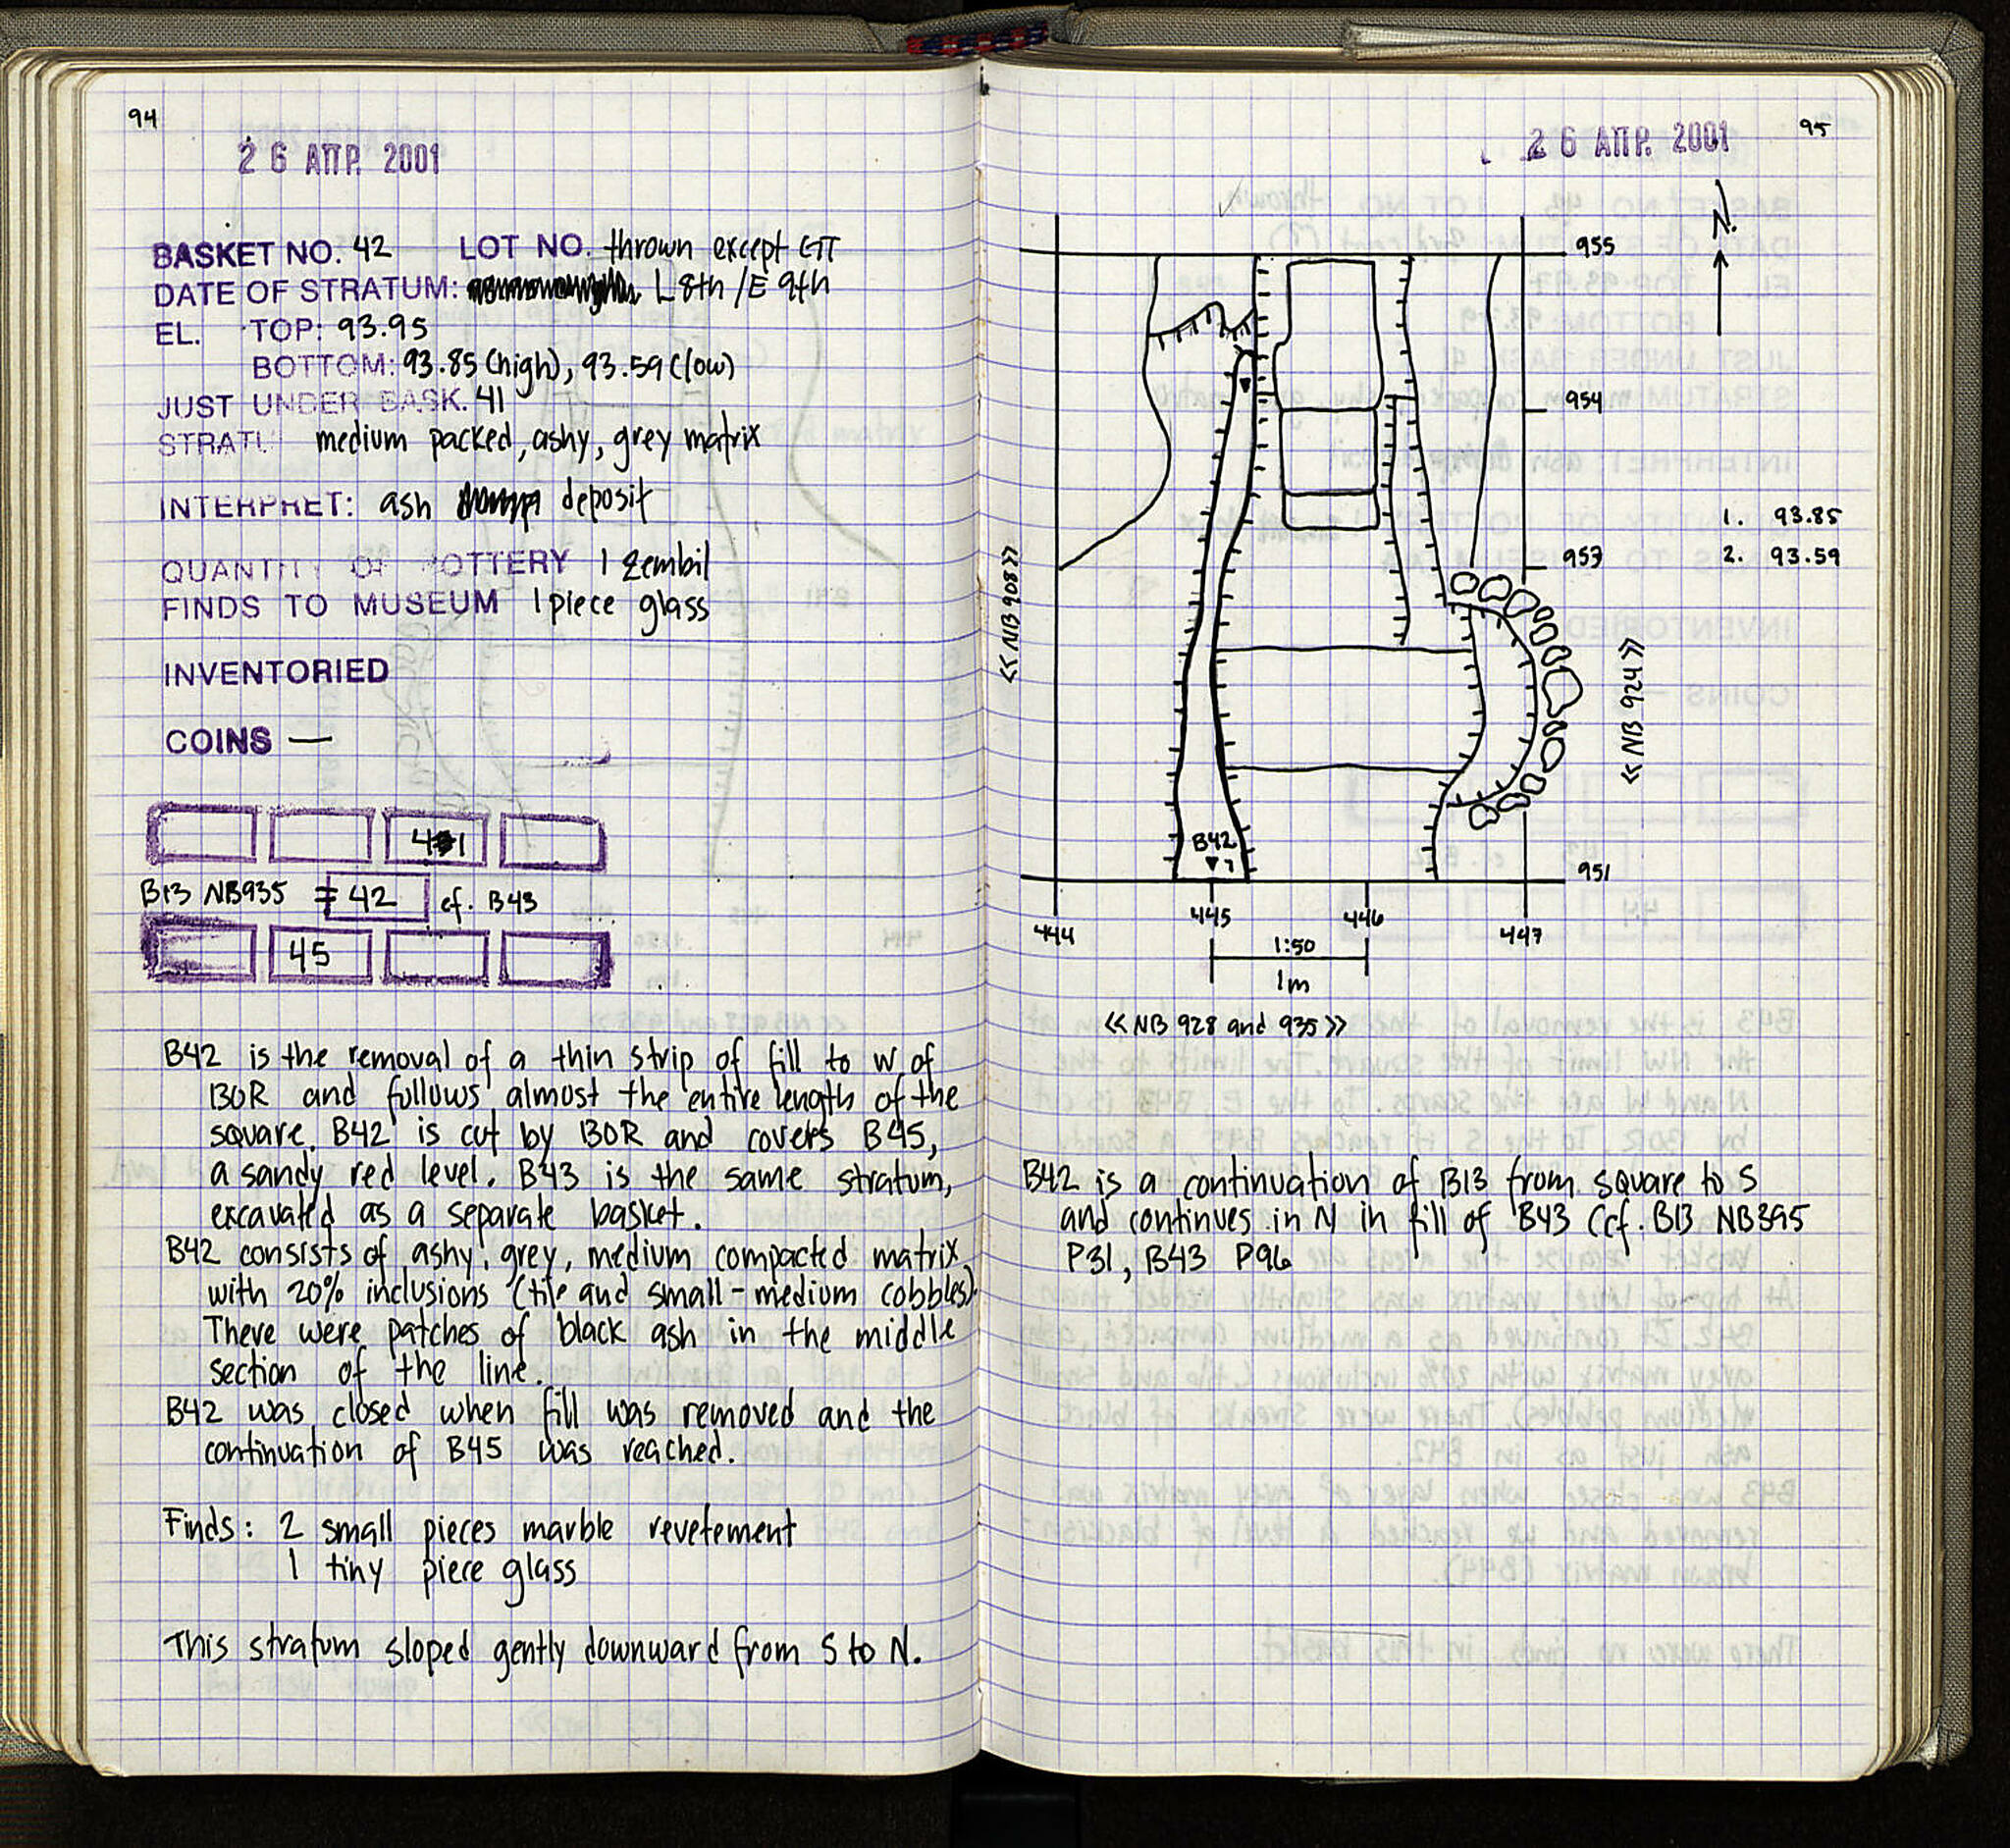 94
2 6 ΑΠΡ. 2001
BASKET NO. 42 LOT NO. thrown except GTT
DATE OF STRATUM: L 8th /E 9th
EL. TOP: 93.95
BOTTOM: 93.85 (high), 93.59 (low)
JUST UNDER BASK. 41
STRATU medium packed, ashy, grey matrix
INTERPRET: ash deposit
QUANTITY OF POTTERY 1 zembil
FINDS TO MUSEUM 1 piece glass
INVENTORIED
COINS —
41
B13 NB935 = 42 cf. B43
45
B42 is the removal of a thin strip of fill to W of
BOR and follows almost the entire length of the
square. B42 is cut by BOR and covers B45,
a sandy red level. B43 is the same stratum,
excavated as a separate basket.
B42 consists of ashy, grey, medium compacted matrix
with 20% inclusions (tile and small-medium cobbles).
There were patches of black ash in the middle
section of the line.
B42 was closed when fill was removed and the
continuation of B45 was reached.
Finds: 2 small pieces marble revetement
1 tiny piece glass
This stratum sloped gently downward from S to N.
95
2 6 ΑΠΡ. 2001
N.
955
954
1. 93.85
953
2. 93.59
<< NB 908 >>
<< NB 924 >>
B42
951
444
445
446
447
1:50
1m
<< NB 928 and 935 >>
B42 is a continuation of B13 from square to S
and continues in N in fill of B43 (cf. B13 NB395
P31, B43 P96